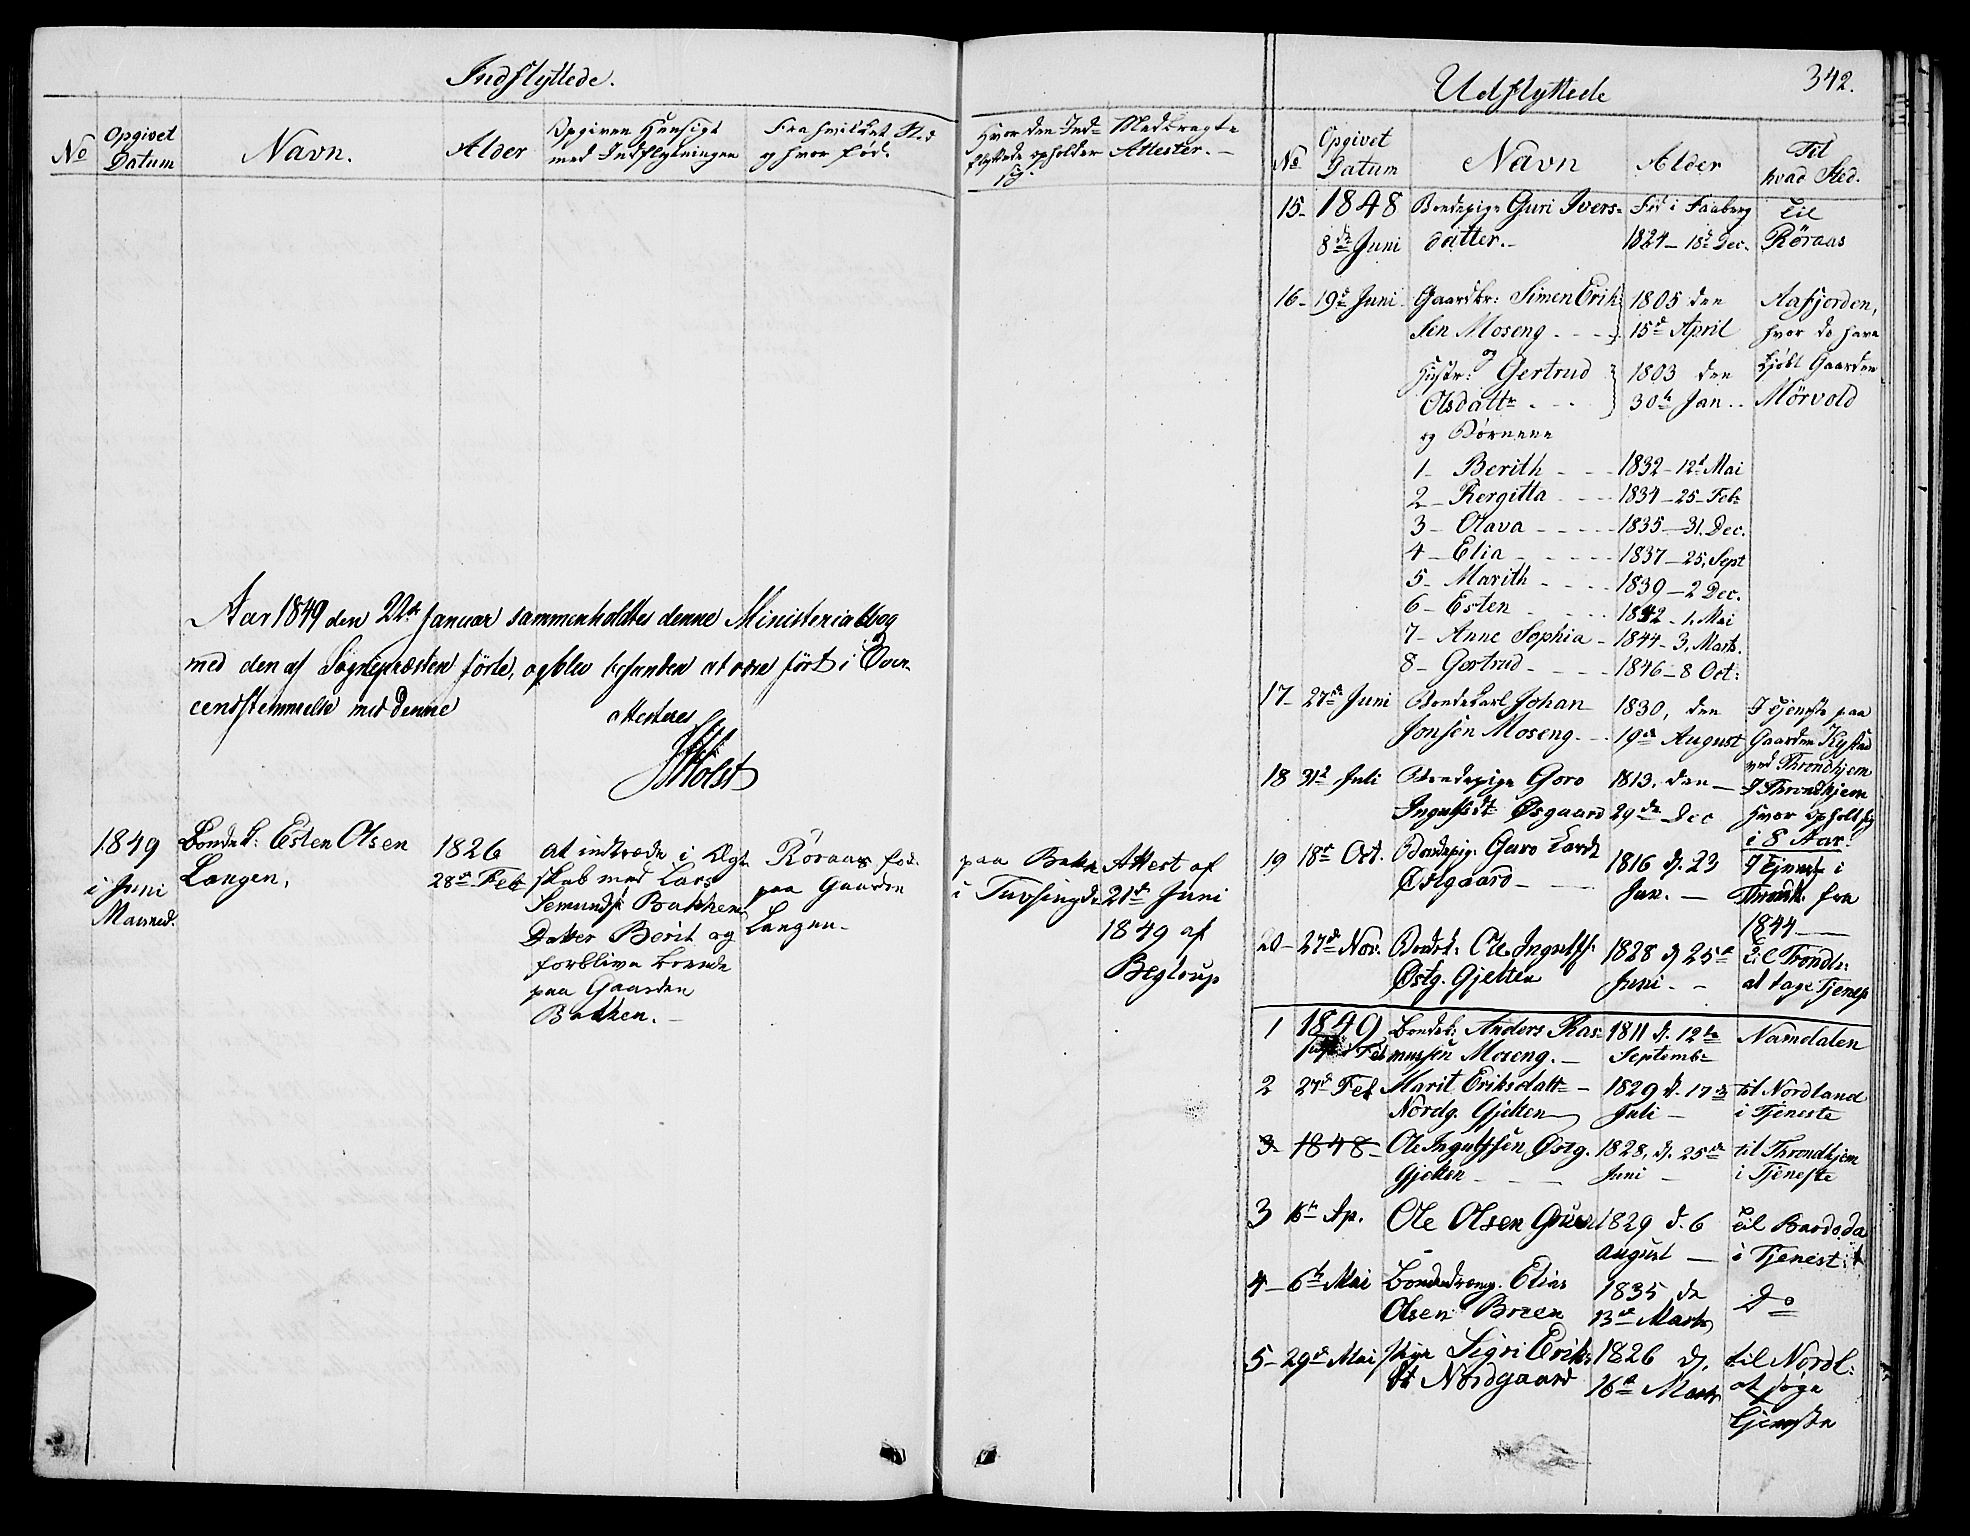 Indflyttede.
No
Opgivet
Datum
Navn.
Alder
Opgiven Hensigt
med Indflytningen
Fra hvilket Sted
og hvor fød.
Hvor den Ind=
flyttede opholder
sig.
Medbragte
Attester.
Aar 1849 den 22de Januar sammenholdtes denne Ministerialbog
med den af Sognepræsten förte, og blev befunden at være fört i Over-
eensstemmelse med denne
Attesteres
Holst
1849
i Juni
Maaned.
Bondek: Esten Olsen
Langen,
1826
28de Feb
at indtræde i Ægte
skab med Lars
Semunds. Bakken
Datter Berit og
forblive boende
paa Gaarden
Bakken.
Röraas fød.
paa Gaarden
Langen.
paa Bakken
i
Attest af
21de Juni
1849 af
Begtrup
342.
Udflyttede
No
Opgivet
Datum
Navn
Alder
Til
hvad Sted.
15- 1848 Bondepige Guri Ivers= Fød i Faaberg til
8de Juni datter.- 1824- 18de Dec. Röraas
16- 19de Juni Gaardbr: Simen Erik 1805 den Aafjorden,
sen Moseng - - - 15de April hvor de have
og
Hustr: Gertrud 1803 den kjøbt Gaarden
Olsdattr - - - 30te Jan.. Mörvold
og Børnene
1- Berith - - - 1832-12te Mai
2- Bergitta - - - 1834-25-Feb
3- Olava - - - - 1835-31. Dec.
4- Elia - - - - - 1837-25. Sept
5- Marith - - - - 1839-2 Dec.
6- Esten - - - - 1842-1. Mai
7- Anne Sophia - 1844-3. Marts.
8- Gertrud - - - - 1846-8 Oct:
17- 27de Juni Bondekarl Johan 1830, den I Tjeneste paa
Jonsen Moseng - - 19de August Gaarden Kystad
ved Throndhjem
18 31te Juli Bondepige Goro 1813. den I Throndhjem
Ingulfsdt Øsgaard 29de Dec hvor opholdt sig
i 8 Aar.
19 18de Oct. Bondepig. Guro 1816 d. 23 I Tjeneste i
Østgaard - Jan. - Trondh. fra
1844 -
20- 27de Nov. Bondek: Ole Ingulfs: 1828 d 25de til Trondh:
Østg. Gjelten Juni - - at tage Tjenest
1 1849 Bondek: Anders Ras= 1811 d. 12te Namdalen
Feb mussen Moseng.- Septembr
2 27de Feb Marit Eriksdatt - 1829 d. 17de til Nordland
Nordg. Gjelten Juli - i Tjeneste
3- 1848- Ole Ingulfssen Østg. 1828, d. 25de til Throndhjem
Gjelten - - - Juni - i Tjeneste
3 Ap. Ole Olsen 1829 d. 6 til Bardoda
August - i Tjenest:
4- 6te Mai Bondedreng. Elias 1835 de Do
Olsen 13de Marts
5- 29de Mai Pige Sigri Eriks 1826 d. til Nordl:
dt Nordgaard 16de Marts at søge
tjeneste